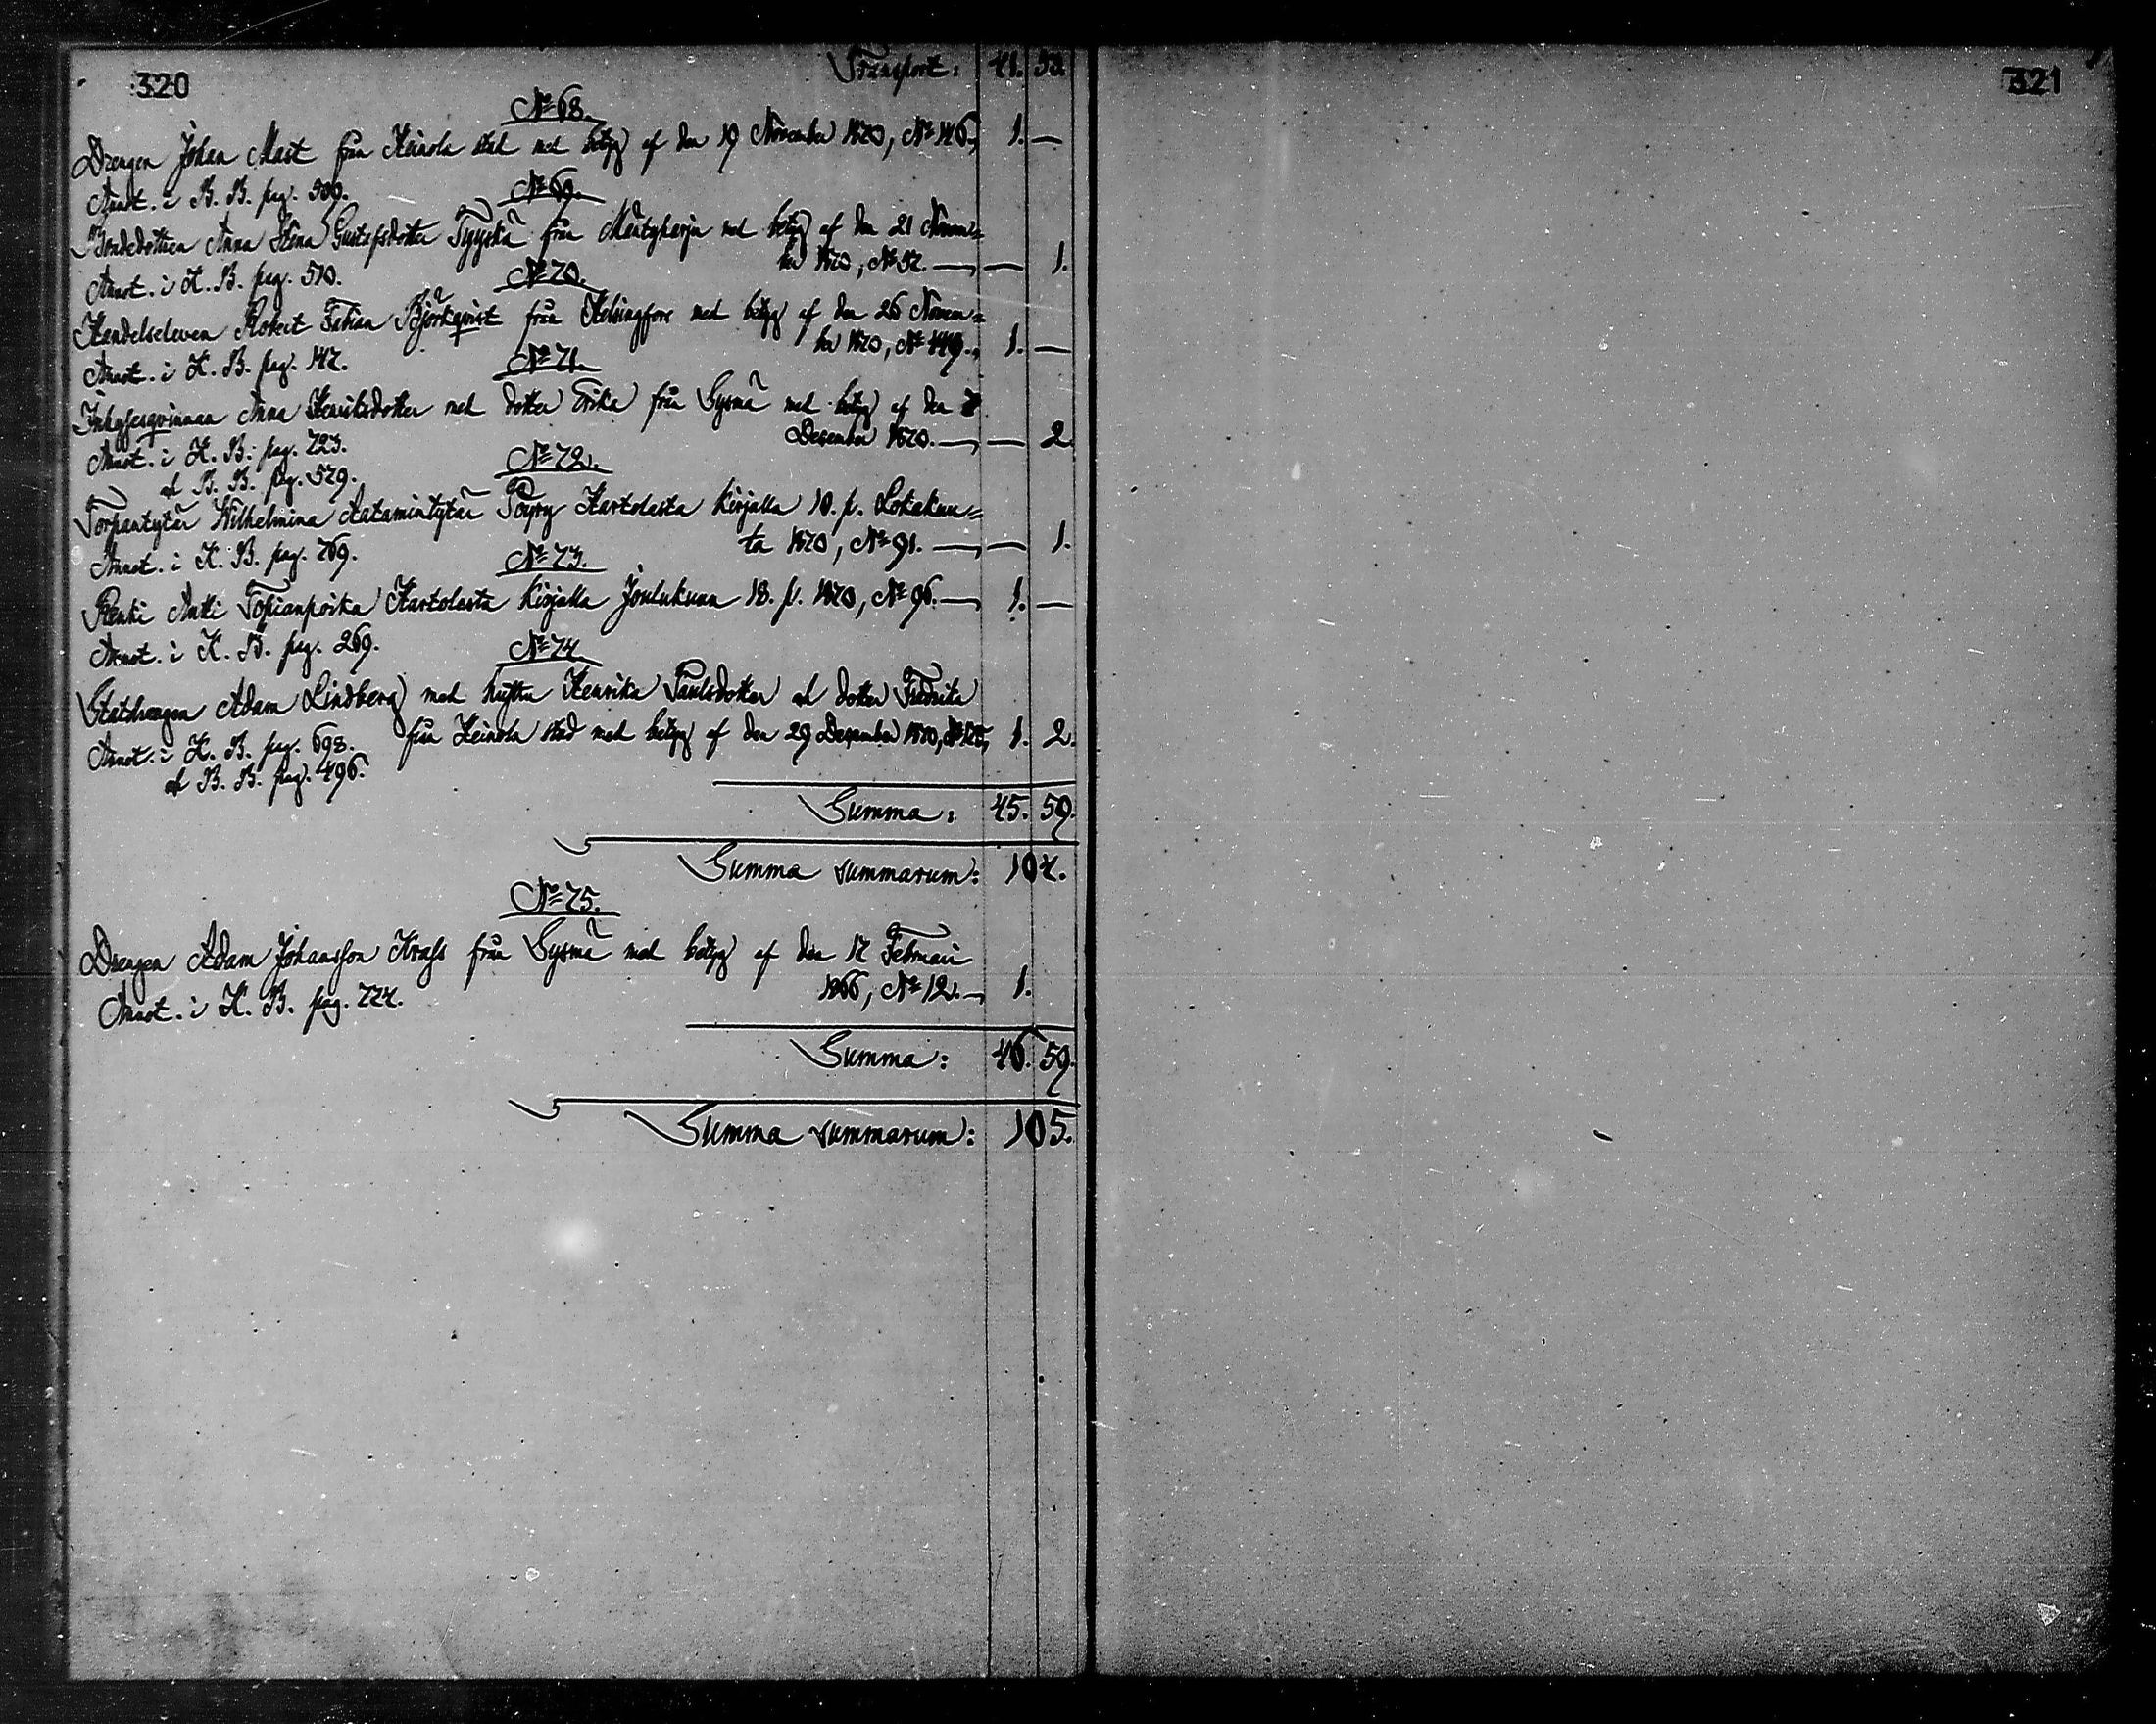 320
Transport: 41. 53.
№ 68.
Drengen Johan Mast från Heinola stad med betyg af den 19 November 1870, № 146, 1. —
Annot. i B. B. pag. 509.
№ 69.
Bondedottren Anna Stina Gustafsdotter Tyyskä från Mäntyharju med betyg af den 21 Novem=
ber 1870, № 57. — — 1.
Annot. i K. B. pag. 510.
№ 70.
Handelseleven Robert Fabian Björkqvist från Helsingfors med betyg af den 26 Novem=
ber 1870, № 449., 1. —
Annot. i K. B. pag. 147.
№ 71.
Inhysesqvinnan Anna Henriksdotter med dotter Erika från Sysmä med betyg af den
December 1870. — — 2
Annot. i K. B. pag. 723.
och B. B. pag. 579.
№ 72.
Torpantytär Wilhelmina Aatamintytär Pöyry Hartolasta kirjalla 10. p. Lokakuu=
ta 1870, № 91. — — 1.
Annot. i K. B. pag. 769.
№ 73.
Renki Antti Tofianpoika Hartolasta kirjalla Joulukuun 18. p. 1870, № 96. — 1. —
Annot. i K. B. pag. 269.
№ 74
Statdrengen Adam Lindberg med hustru Henrika Paulsdotter och dotter Fredrika
från Heinola stad med betyg af den 29 December 1870, № 125, 1. 2.
Annot. i K. B. pag. 698.
och B. B. pag. 496.
Summa: 45. 59.
Summa summarum: 104.
№ 75.
Drengen Adam Johansson Krass från Sysmä med betyg af den 17 Februari
1866, № 12. — 1.
Annot. i K. B. pag. 774.
Summa: 46. 59.
Summa summarum: 105.
321